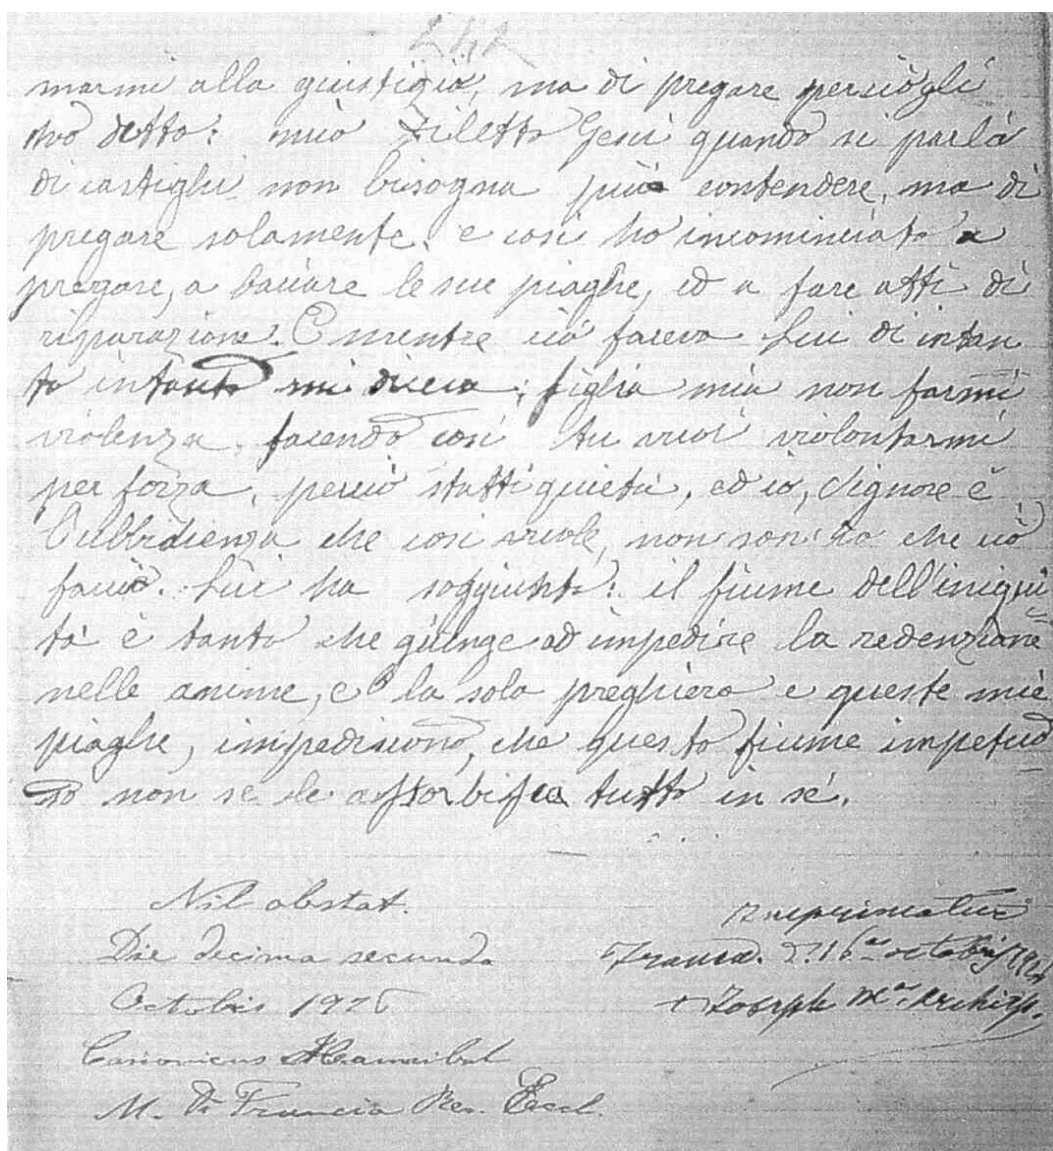 marmi alla giustizia, ma di pregare perciò gli
ho detto: mio diletto Gesù quando si parla
di castighi non bisogna più contendere, ma di
pregare solamente, e così ho incominciato a
pregare, a baciare le sue piaghe, ed a fare atti di
riparazione. E mentre ciò faceva Lui di intan
to intanto mi diceva: figlia mia non farmi
violenza, facendo così tu vuoi violontarmi
per forza, perciò statti quieta, ed io, Signore è
l'ubbidienza che così vuole, non son io che ciò
faccio. Lui ha soggiunto: il fiume dell'iniqui
tà è tanto che giunge ad impedire la redenzione
nelle anime, e la sola preghiera e queste mie
piaghe, impediscono, che questo fiume impetuo
so non se le assorbisca tutto in sé.
Nil obstat.
Die decima secunda
Octobris 1926
Canonicus Hannibal
M. Di Francia Rev. Eccl.
Imprimatur
Trani. D. 16 octobris 1926
+ Joseph M. Archiep.